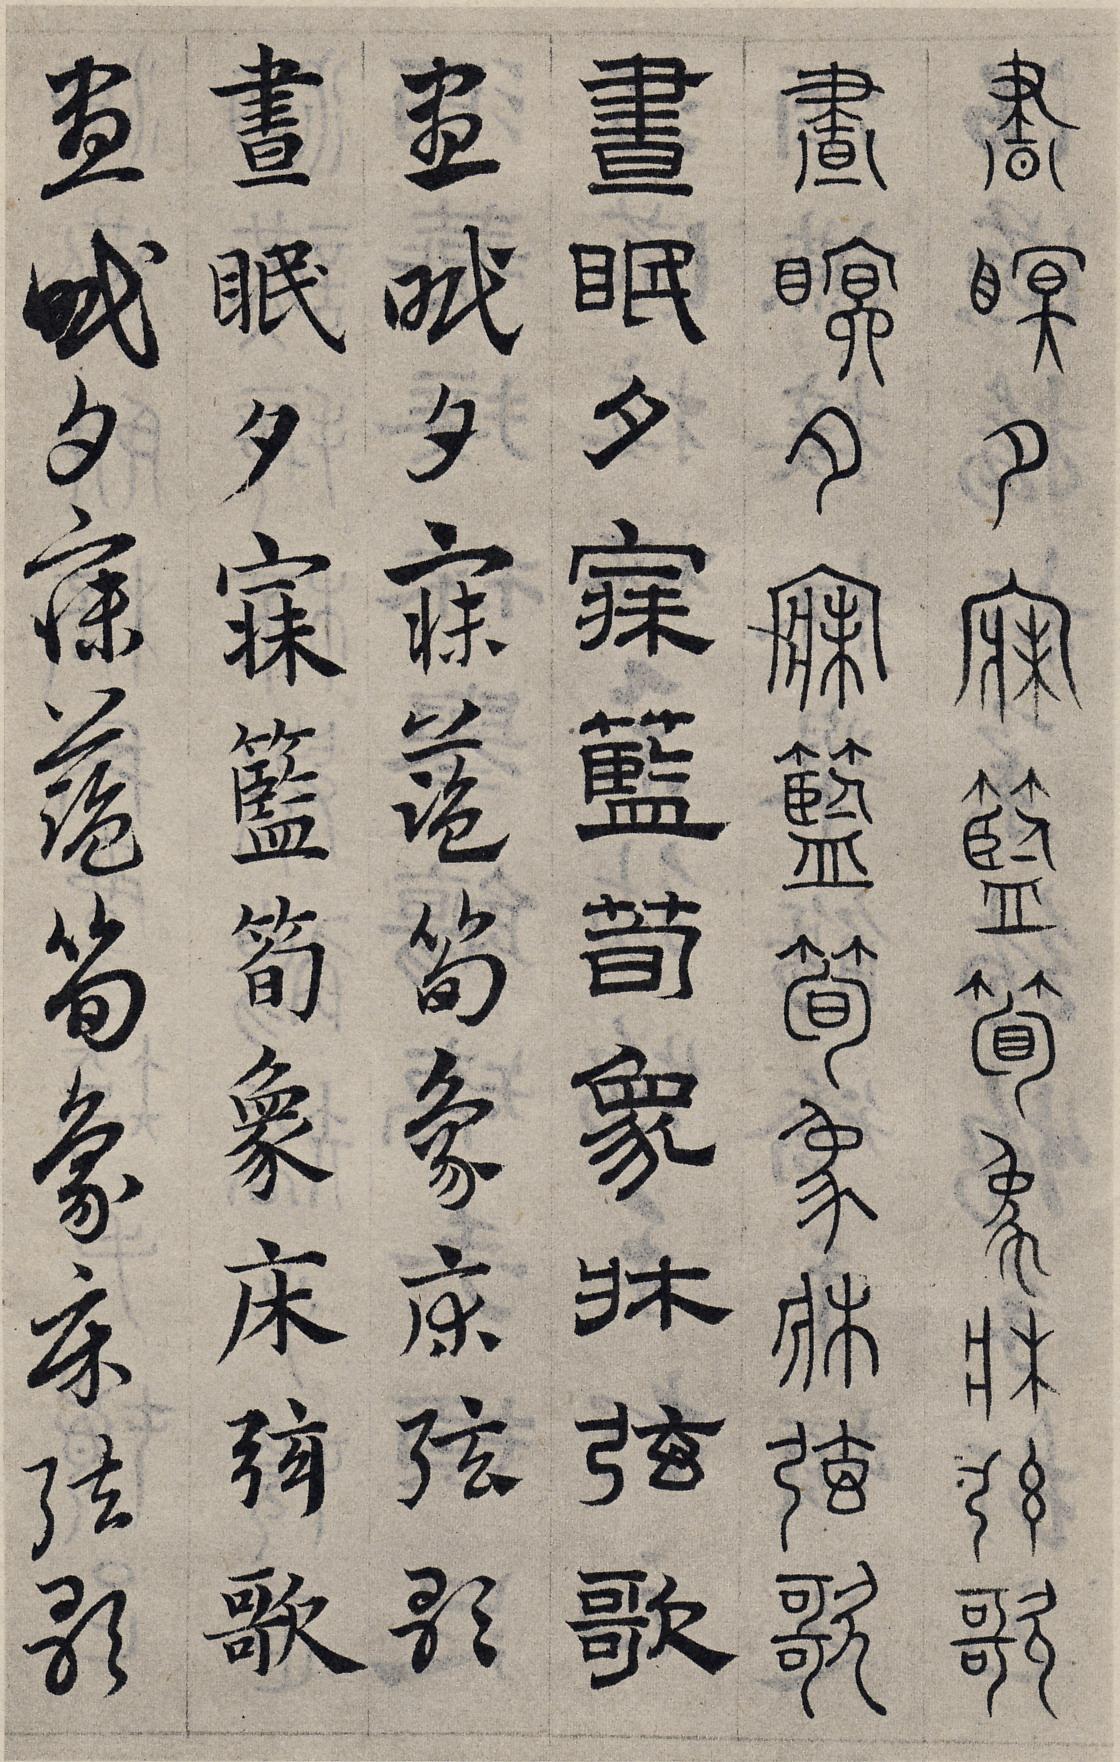 晝瞑夕寐籃筍象牀弦歌
晝瞑夕寐籃筍象牀弦歌
晝眠夕寐藍荀象牀弦歌
晝眠夕寐藍筍象床弦歌
晝眠夕寐籃筍象床弦歌
晝眠夕寐藍筍象床弦歌